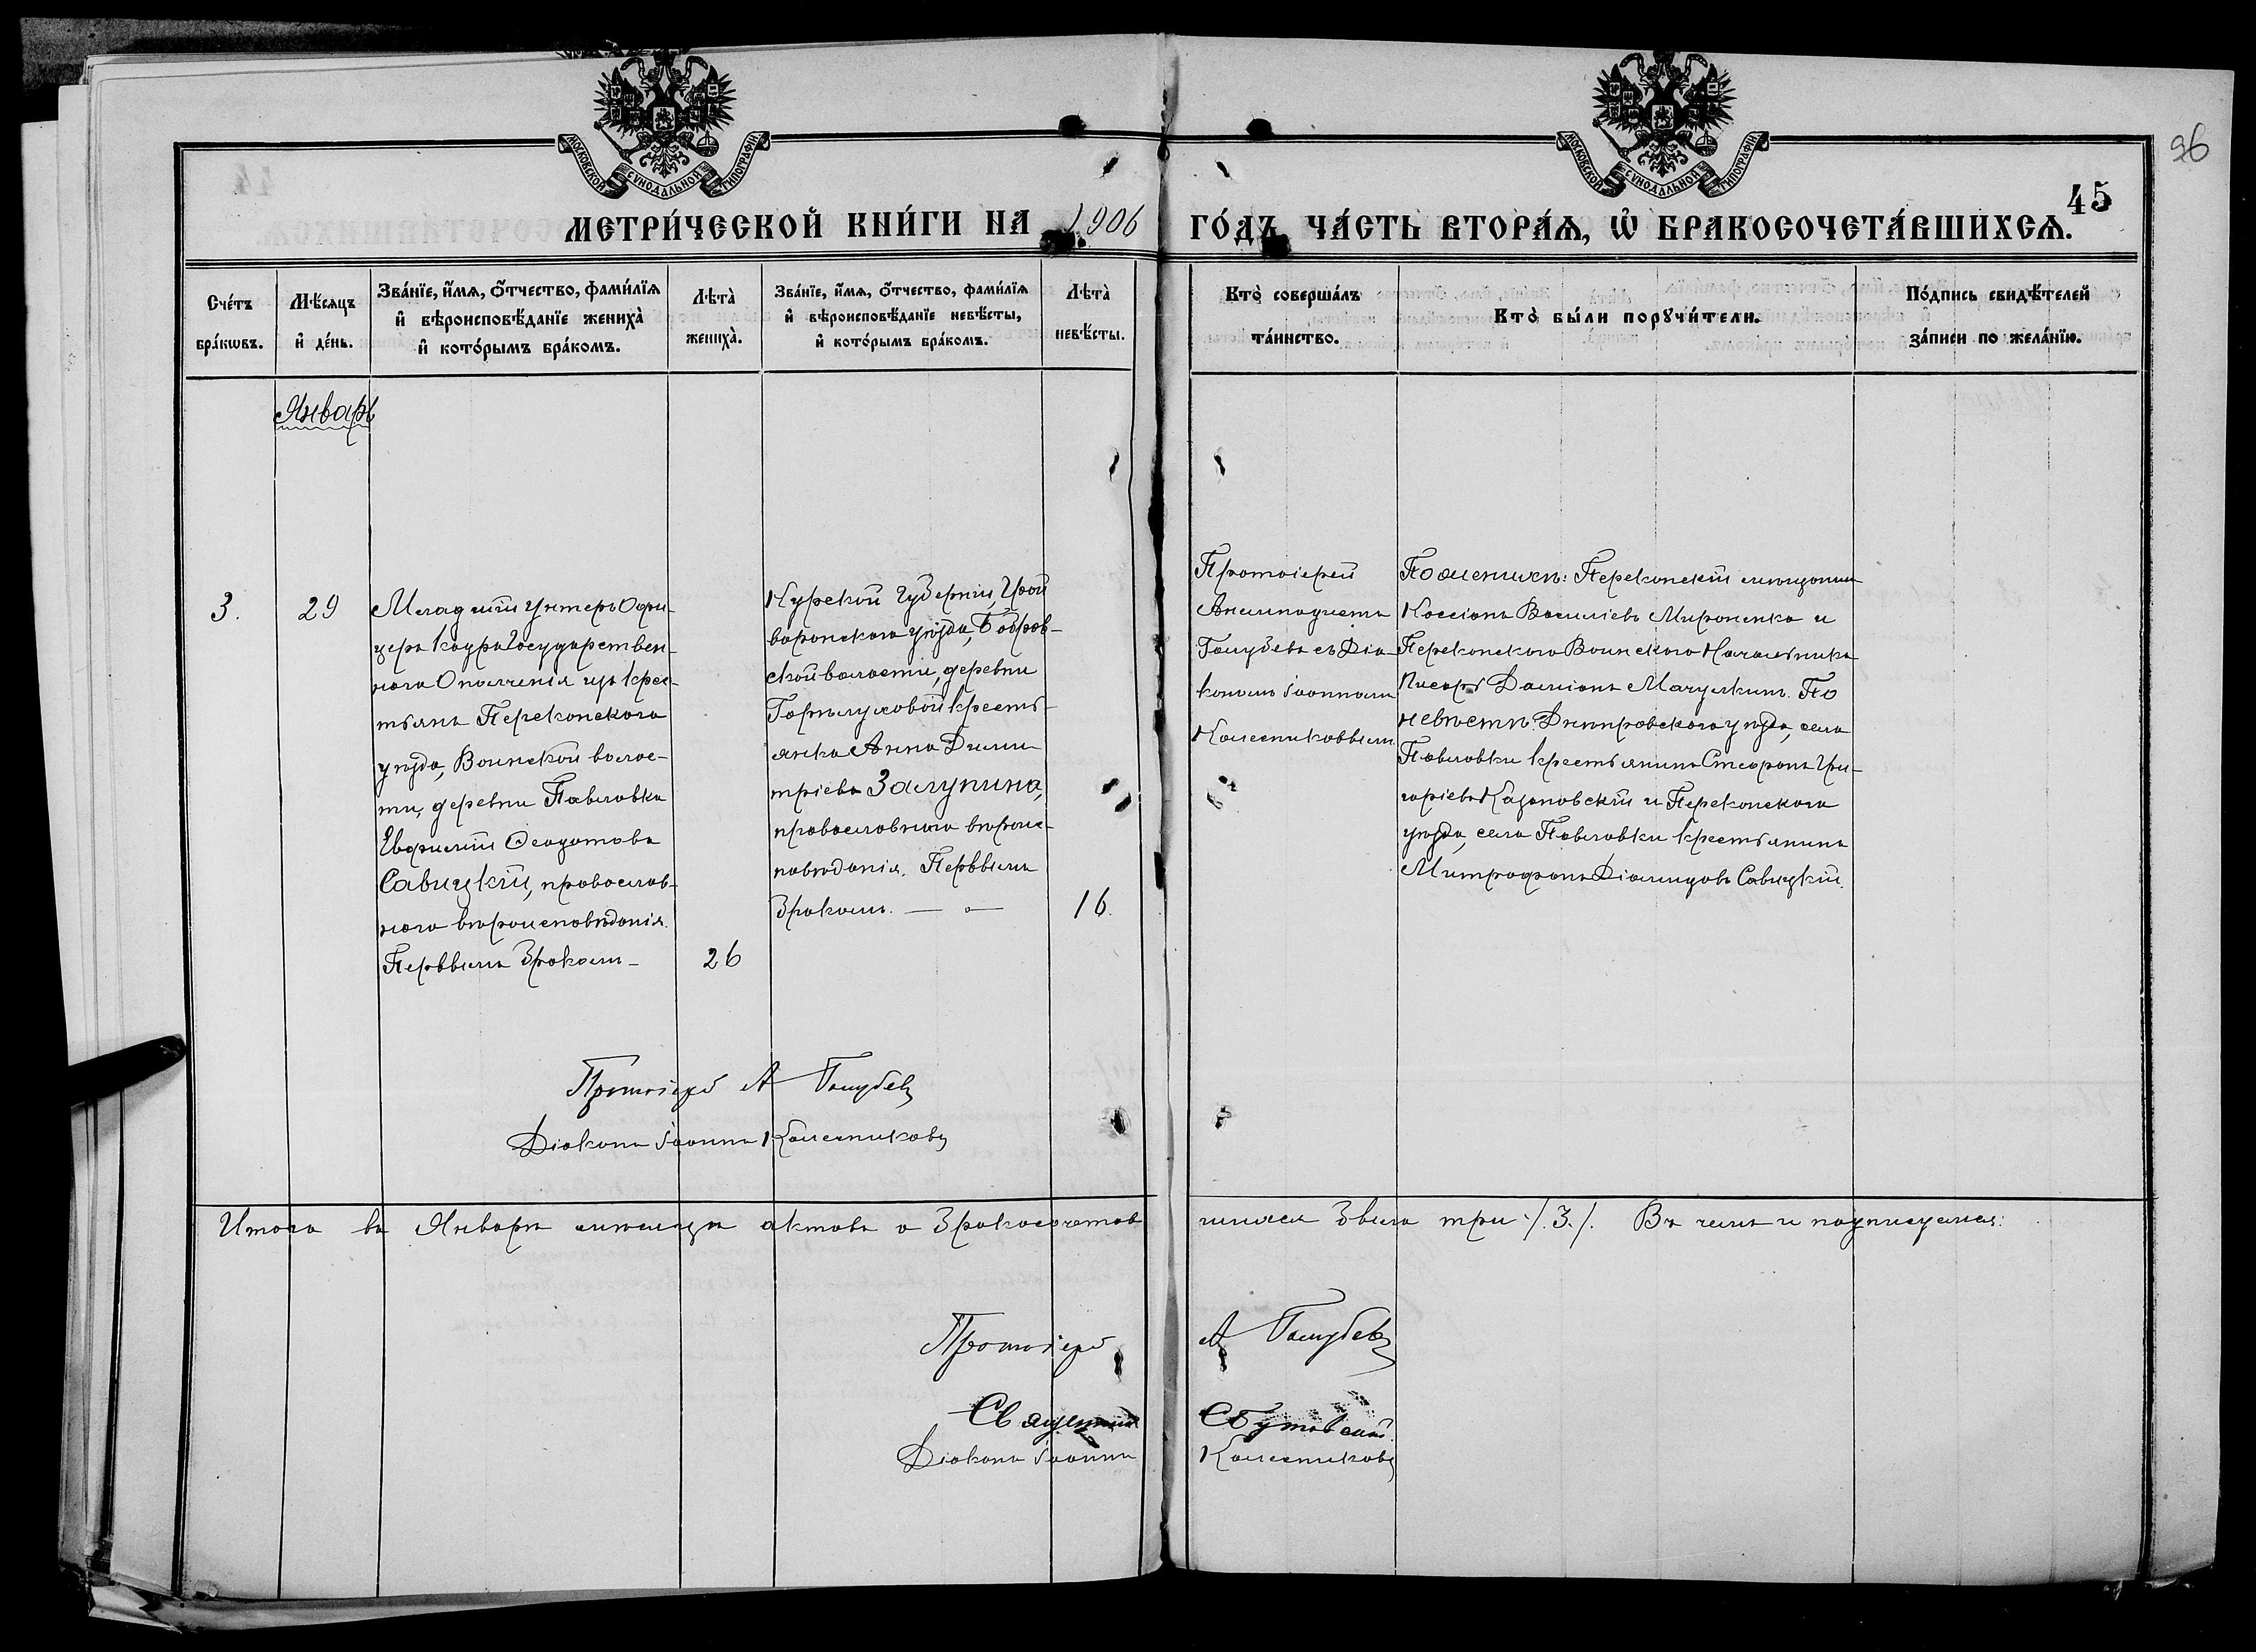 96
45
МОСКОВСКОЙ СѴНОДАЛЬНОЙ ТИПОГРАФІИ
МОСКОВСКОЙ СѴНОДАЛЬНОЙ ТИПОГРАФІИ
МЕТРИ́ЧЕСКОЙ КНИ́ГИ НА 1906 ГО́ДЪ ЧА́СТЬ ВТОРА́Ѧ, Ѽ БРАКОСОЧЕТА́ВШИХСѦ.
Сче́тъ
бра́кѡвъ.
Мѣ́сяцъ
и҆ де́нь.
Зва́нїе, и҆́мѧ, ѻ҆́тчество, фами́лїѧ
и҆ вѣроисповѣ́данїе жениха̀
и҆ кото́рымъ бра́комъ.
Лѣта̀
жениха̀.
Зва́нїе, и҆́мѧ, ѻ҆́тчество, фами́лїѧ
и҆ вѣроисповѣ́данїе невѣ́сты,
и҆ кото́рымъ бра́комъ.
Лѣта̀
невѣ́сты.
Кто̀ соверша́лъ
та́инство.
Кто̀ бы́ли порꙋчи́тели.
По́дпись свидѣ́телей
за́писи по жела́нїю.
Январь
3.
29
Младшій Унтеръ Офи-
церъ Кадра Государствен-
наго Ополченія изъ крес-
тьянъ Перекопскаго
уѣзда, Воинской волос-
ти, деревни Павловка
Евфимій Ѳеодотовъ
Савицкій, православ-
наго вѣроисповѣданія.
Первымъ бракомъ
26
Курской губерніи, Грай
воронского уѣзда, Бобров-
ской волости, деревни
крестьянка
Анна Дими
тріева Залупина,
православного вѣроис-
повѣданія. Первымъ
бракомъ.
16.
Протоіерей
Голубевъ съ Діа-
кономъ Іоанномъ
Колесниковымъ.
По женихѣ: Перекопскій мѣщанинъ
Кассіанъ Василіевъ Мироненко и
Перекопскаго Воинскаго Начальника
Писарь Даміанъ По
невѣстѣ: Днѣпровскаго уѣзда, села
Павловки крестьянинъ Стефанъ Гри-
горіевъ Казановскій и Перекопскаго
уѣзда, села Павловки крестьянинъ
Митрофанъ Діомидовъ Савицкій.
Протоіерей А Голубевъ
Діаконъ Іоаннъ Колесниковъ
Итого въ Январѣ мѣсяцѣ актовъ о бракосочетав
шихся было три /.3./. Въ чемъ и подписуемся:
Протоіерей А Голубевъ
Священникъ С Бутовскій.
Діаконъ Іоаннъ Колесниковъ